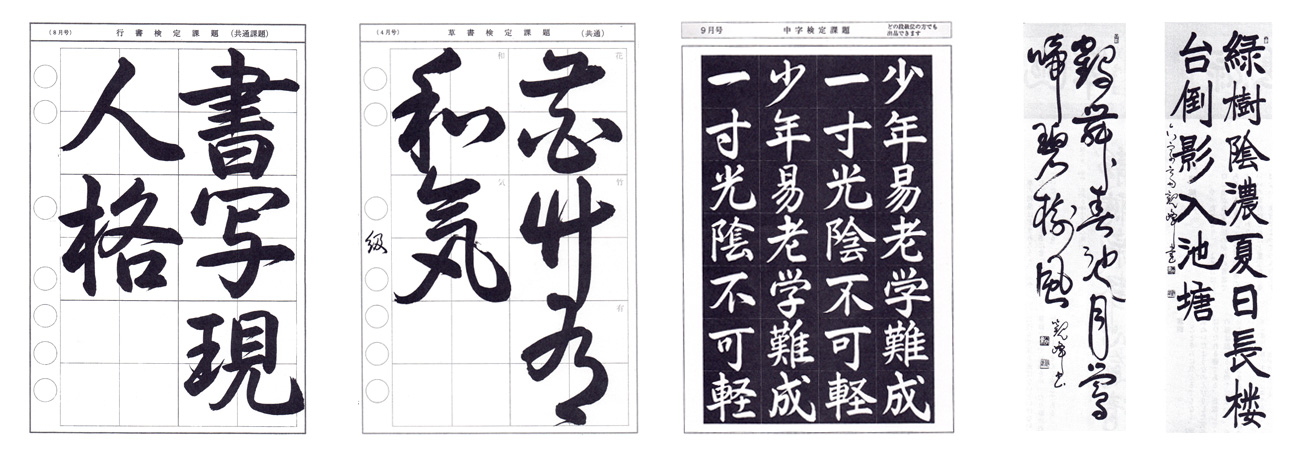 (8月号) 行書検定課題 (共通課題)
書写現
人格
(4月号) 草書検定課題 (共通)
花竹有
和気
花
竹
有
和
気
級
9月号 中字検定課題 どの段級位の方でも
出品できます
少年易老学難成
一寸光陰不可軽
少年易老学難成
一寸光陰不可軽
鶴舞春池月鶯
啼碧樹風
観峰書
緑樹陰濃夏日長楼
台倒影入池塘